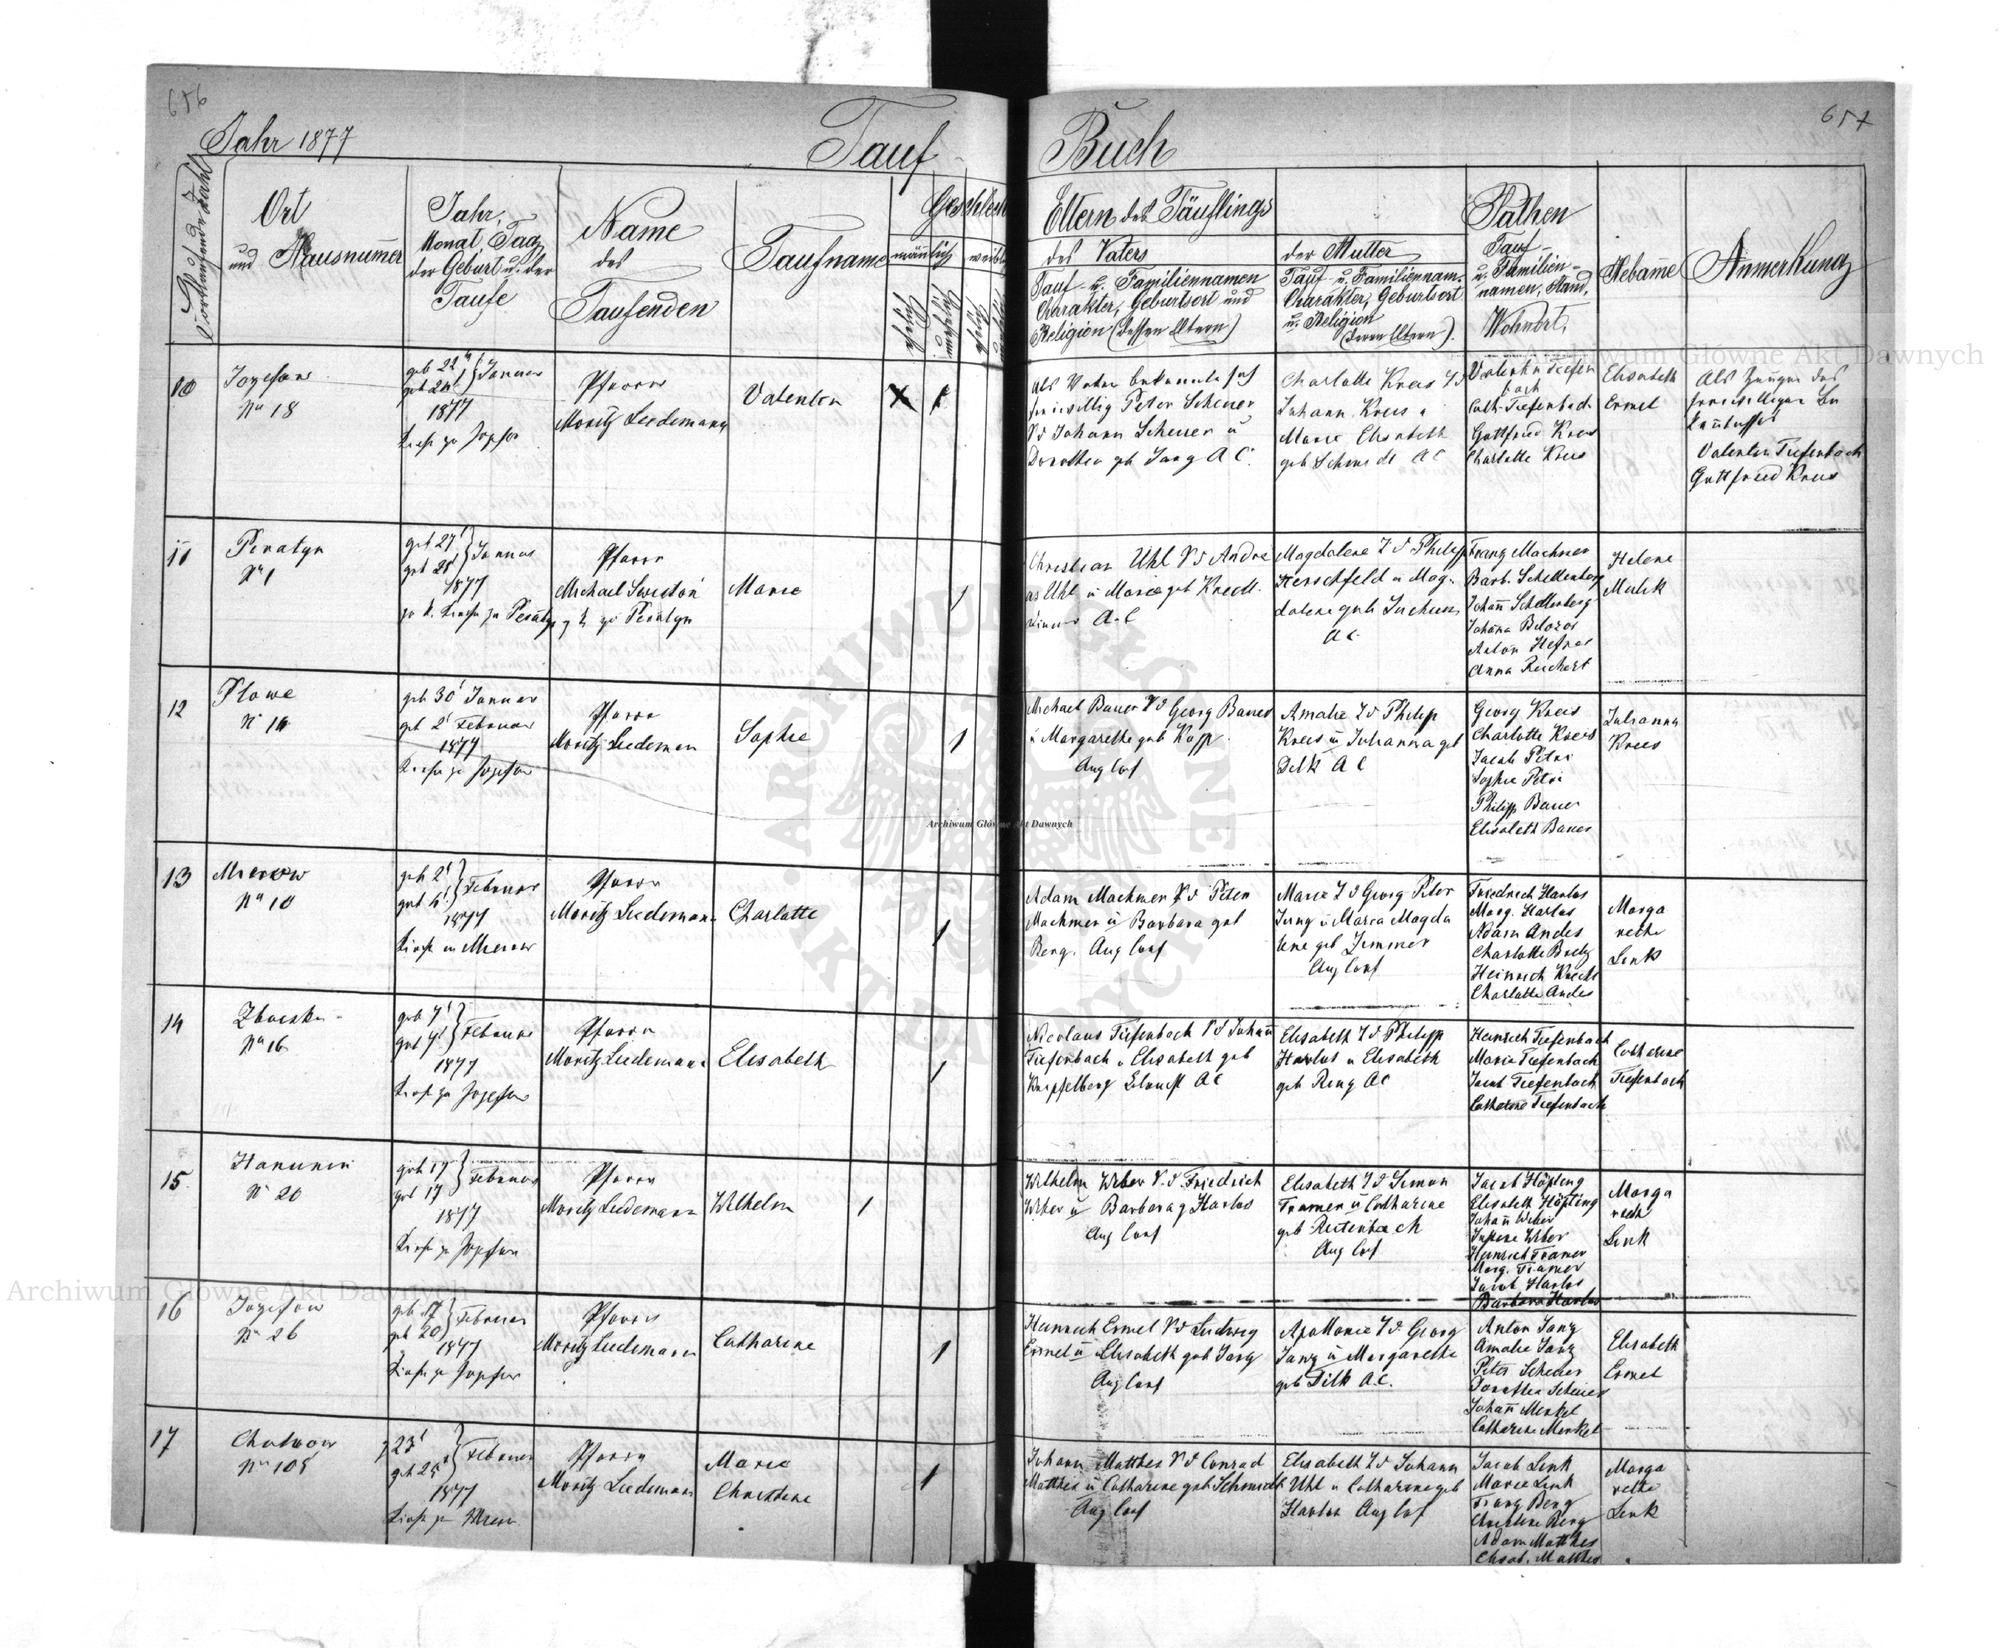 656
657
Jahr 1877
Tauf
Buch
Ort
und Hausnummer
Jahr,
Monat, Tag
der Geburt u. der
Taufe
Name
des
Taufenden
Taufname
Geschlech
männlich
weibl
Eltern des Täuflings
des Vaters
Tauf- u. Familiennamen
Charakter, Geburtsort und
Religion (dessen Eltern)
der Mutter
Tauf u. Familiennam.
Charakter, Geburtsort
u. Religion
(deren Eltern).
Pathen
Tauf-
u. Familien-
namen, Stand,
Wohnort,
Hebamme
Anmerkung
10
Jozefow
No 18
geb 22 Januar
get 24
1877
Kirche zu Jozefow
Pfarrer
Moritz Leedemann
Valentin
1
Als Vater bekannte sich
freiwillig Peter Scheuer
V d Johann Scheuer u
Dorothea geb Jang A C.
Charlotte Kreis T d
Johann Kreis u
Marie Elisabeth
geb Schmidt A C
Valentin Tiefen
bach
Cath. Tiefenbach
Gottfried Kreis
Charlotte Kreis
Elisabeth
Ermel
Als Zeugen des
freiwilligen Be
kenntnisses
Valentin Tiefenbach
Gottfried Kreis
11
Peratyn
No 1
geb 27 Januar
get 28
1877
Pfarrer
Michael
zu Peratyn
Marie
1
Christian Uhl V d Andre
as Uhl u Marie geb
A. C
Magdalene T d Philipp
Herschfeld u Mag-
dalene geb
A C.
Franz Machner
Barb. Schellenberg
Johann Schellenberg
Johana
Anton Hefner
Anna Reichert
Helene
Malek
12
Plowe
No
geb 30 Januar
get 2 Februar
1877
Kirche zu Jozefow
Pfarrer
Moritz Leedeman
Sophie
1
Michael Bauer V d Georg Bauer
u Margarethe geb Kopp.
Aug Conf
Amalie T d Philip
Kreis u Johanna geb
Dilk A C
Georg Kreis
Charlotte Kreis
Jacob Petri
Sophie Petri
Philipp Bauer
Elisabeth Bauer
Johanna
Kreis
13
Mierow
No 10
geb 2 Februar
get 4
1877
Kirche in Mierow
Pfarrer
Moritz Leedemann
Charlotte
1
Adam Machmer V d Peter
Machmer u Barbara geb
Berg. Aug Conf
Marie T d Georg Peter
Jung u Maria Magda
lene geb Zimmer
Aug Conf
Friedrich Harlos
Marg. Harlos
Adam Andes
Charlotte
Heinrich Knecht
Charlotte Andes
Marga
rethe
Link
14
No 16
geb 4 Februar
get
1877
Kirche zu Jozefow
Pfarrer
Moritz Leedemann
Elisabeth
1
Nicolaus Tiefenbach V d Johann
Tiefenbach u Elisabeth geb
Knipfelberg A C
Elisabeth T d Philipp
Harlos u Elisabeth
geb Ring A C
Heinrich Tiefenbach
Marie Tiefenbach
Jacob Tiefenbach
Catharine Tiefenbach
Catherine
Tiefenbach
15
Hanunin
No 20
geb 17 Februar
get 19
1877
Kirche zu Jozefow
Pfarrer
Moritz Leedemann
Wilhelm
1
Wilhelm Weber V. d Friedrich
Weber u Barbara g Harlos
Aug Conf
Elisabeth T d Simon
Tramer u Catharine
geb Reitenbach
Aug Conf
Jacob Höpling
Elisabeth Höpling
Johann Weber
Weber
Heinrich Tramer
Marg. Tramer
Jacob Harlos
Barbara Harlos
Marga
reth
Link
16
Jozefow
No 26
geb 17 Februar
get 20
1877
Kirche zu Jozefow
Pfarrer
Moritz Leedemann
Catharine
1
Heinrich Ermel V d Ludwig
Ermel u Elisabeth geb Jang
Aug Conf
Apollonie T d Georg
Jang u Margarethe
geb Dilk A C.
Anton Jang
Amalie Jang
Peter Scheuer
Dorothea Scheuer
Johann Merkel
Catharine Merkel
Elisabeth
Ermel
17
Cholojow
No 105
g 23 Februar
get 25
1877
Pfarrer
Moritz Leedemann
Marie
Christine
1
Johann Matthes V d Conrad
Matthes u Catharine geb Schmidt
Aug Conf
Elisabeth T d Johann
Uhl u Catharine geb
Harlos Aug Conf
Jacob Link
Marie Link
Franz Berg
Christine Berg
Adam Matthes
Elisab. Matthes
Marga
rethe
Link
Archiwum Główne Akt Dawnych
Archiwum Główne Akt Dawnych
Archiwum Główne Akt Dawnych
ARCHIWUM GŁÓWNE AKT DAWNYCH